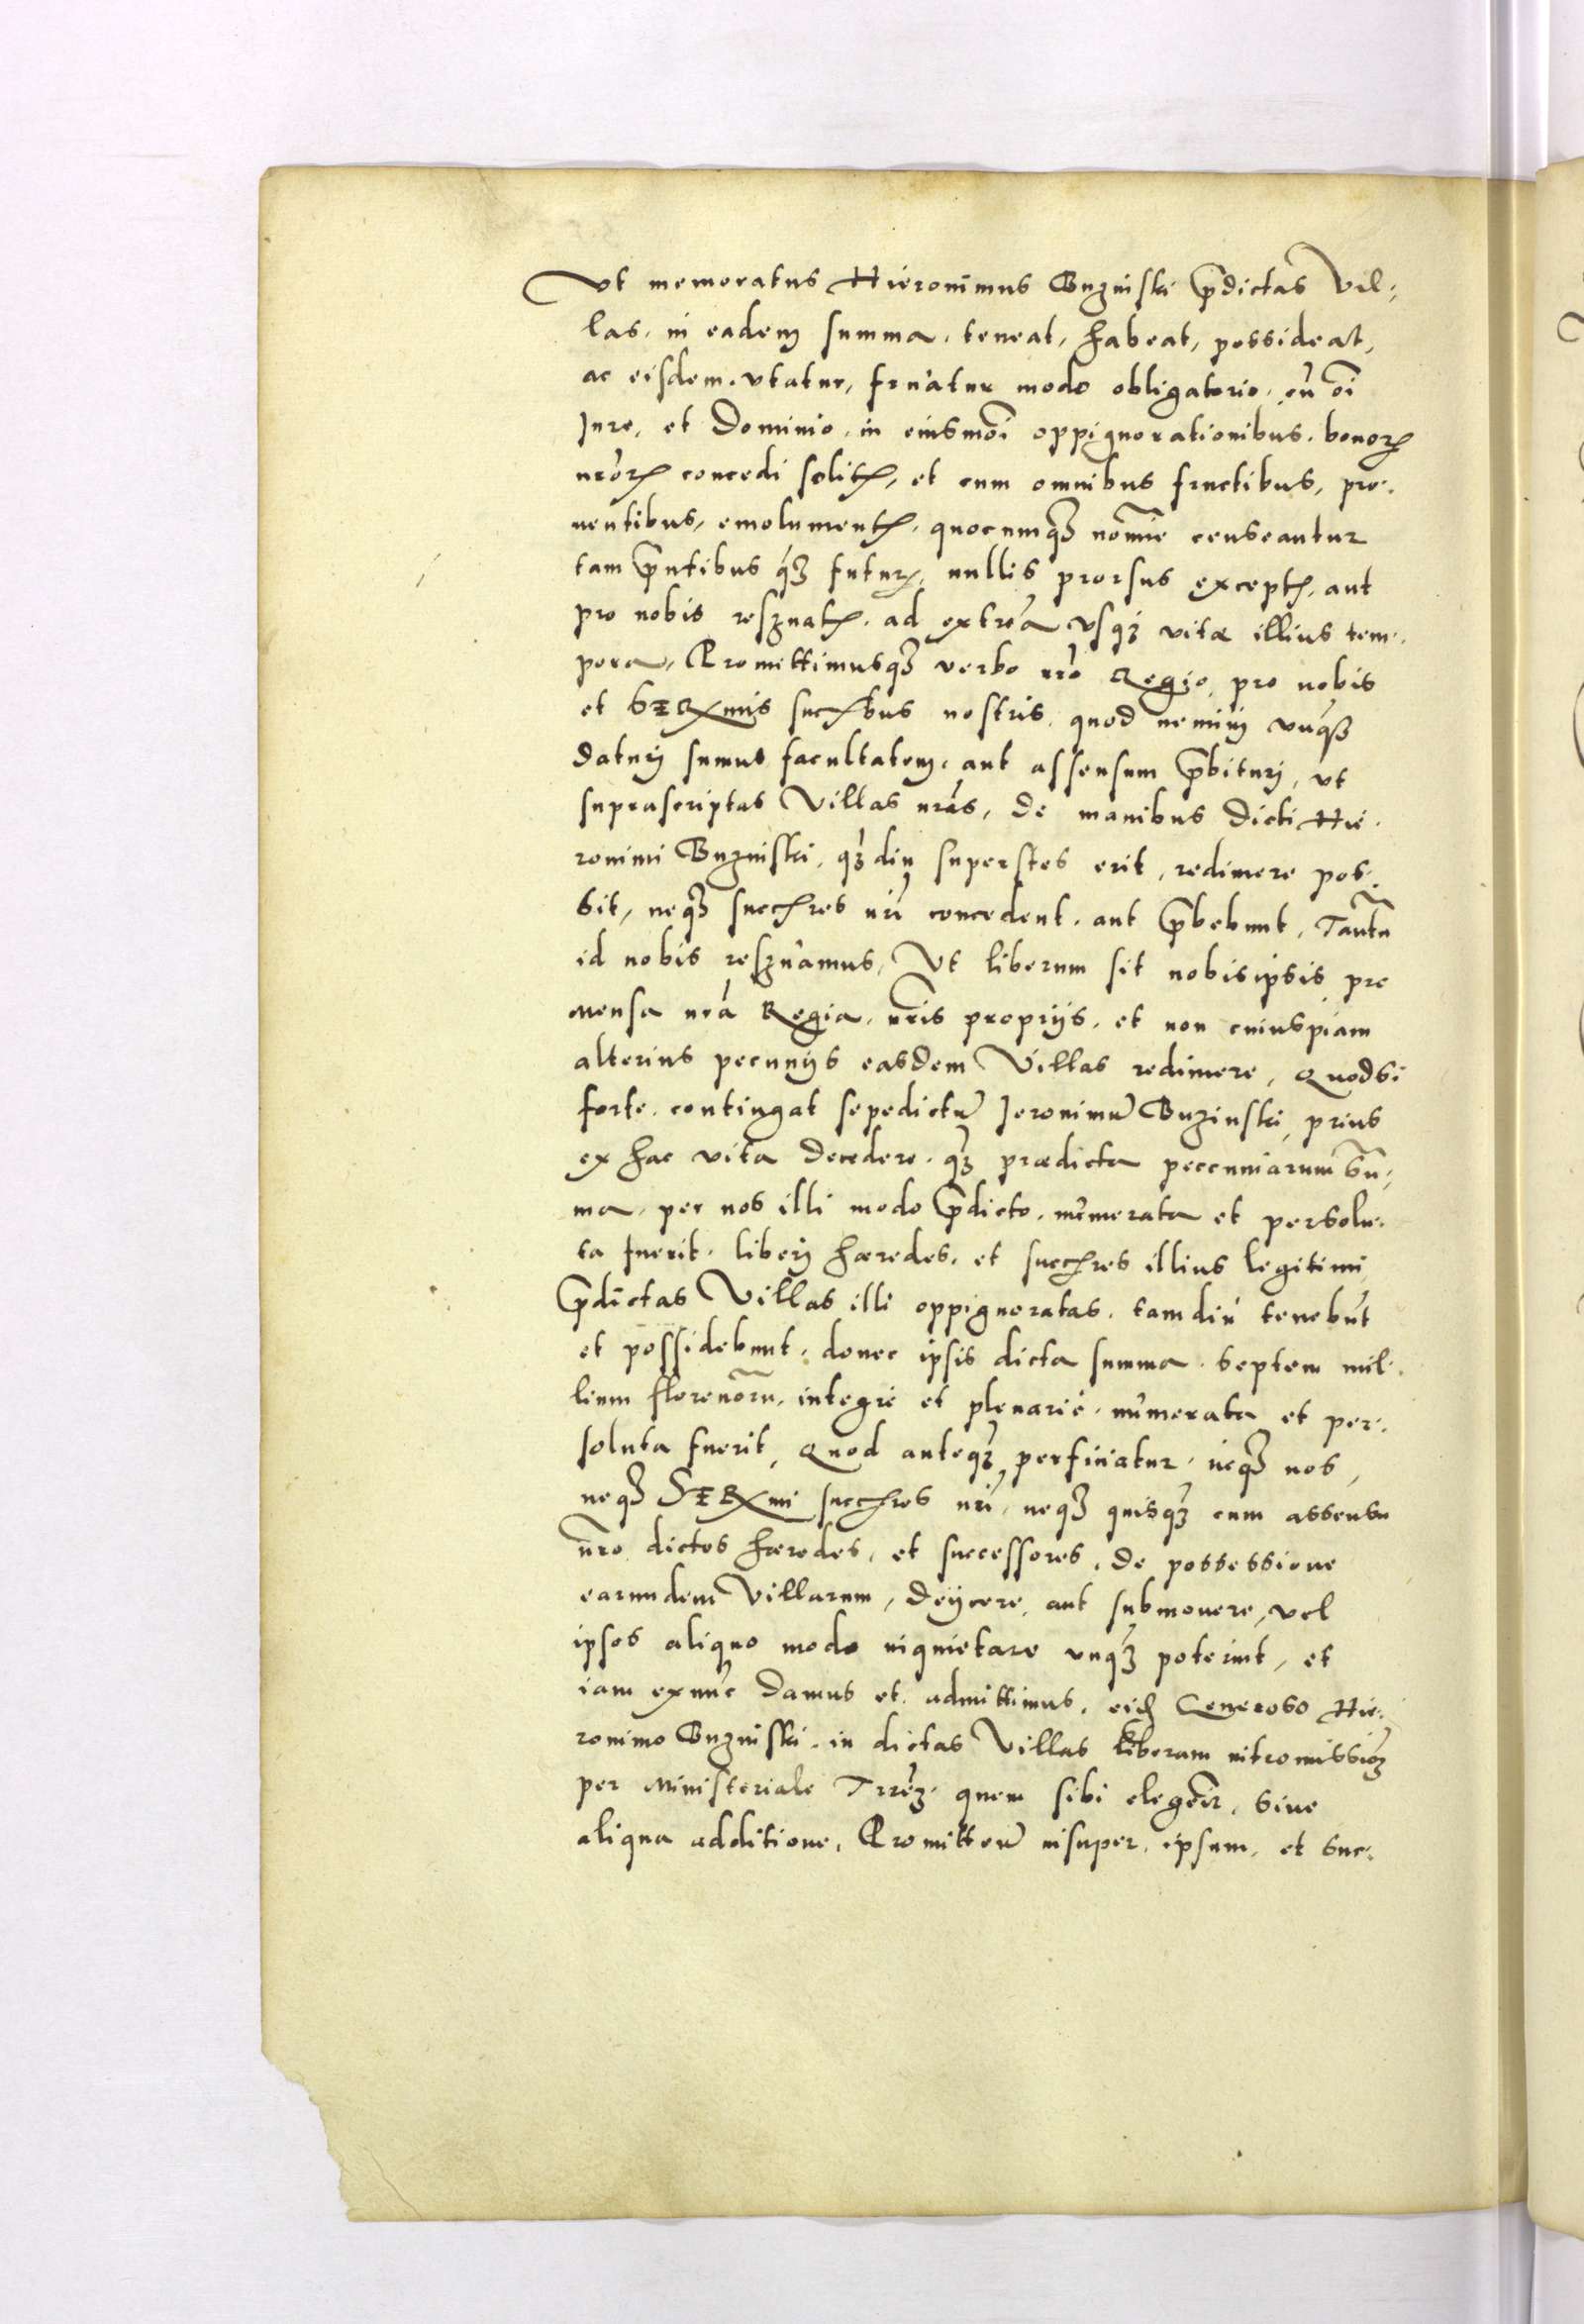 Vt memoratus Hieronimus Buzniski p̄dictas Vil-
las, in eadem summa, teneat, habeat, possideat,
ac eisdem vtatur, fruatur modo obligatorio, cū oī
Jure, et Dominio, in eiusmoī oppignorationibus bonorꝫ
nrōrꝫ concedi solitꝭ, et cum omnibus fructibus, pro-
uentibus, emolumentꝭ, quocumqꝫ nomīe censeantur
tam p̄ntibus qꝫ futurꝭ, nullis prorsus exceptꝭ, aut
pro nobis reserūatꝭ, ad extrēa vsqꝫ vitæ illius tem-
pora, Promittimusqꝫ verbo nrō Regio, pro nobis
et SERmis succꝭbus nostris, quod nemini vnqꝫ
daturj sumus facultatem, aut assensum p̄bituri, vt
suprascriptas Villas nrās, de manibus dicti Hie-
ronimi Buzniski, qꝫ diu superstes erit, redimere pos-
sit, neqꝫ succꝭres nrī concedent, aut p̄bebunt, Tantū
id nobis reseruamus, Vt liberum sit nobisipsis pro
Mensa nrā Regia, nr̄is proprijs, et non cuiuspiam
alterius pecunijs easdem Villas redimere, Quodsi
forte contingat sepedictū Jeronimū Buzinski, prius
ex hac vita decedere, qꝫ prædicta peccuniarum sū-
ma, per nos illi modo p̄dicto, numerata et persolu-
ta fuerit, liberj hæredes, et succꝭres illius legitimi
p̄dictas Villas illi oppignoratas, tamdiu tenebūt
et possidebunt, donec ipsis dicta summa septem mil-
lium florenōru, integrè et plenariè, numerata et per-
soluta fuerit, Quod anteqꝫ perficiatur, neqꝫ nos,
neqꝫ SERmi succꝭres nrī, neqꝫ quisqꝫ cum assensu
nr̄o dictos hæredes, et successores, de possessione
earumdem Villarum, deijcere, aut submouere, vel
ipsos aliquo modo inquietare vnqꝫ poterint, et
iam exnūc damus et admittimus, eidꝫ Generoso Hie-
ronimo Buzniski, in dictas Villas liberam intromissiōꝫ
per Ministeriale Trrēꝫ, quem sibi elegeīr, siue
aliqua additione, Promitteñ insuper, ipsum, et suc-